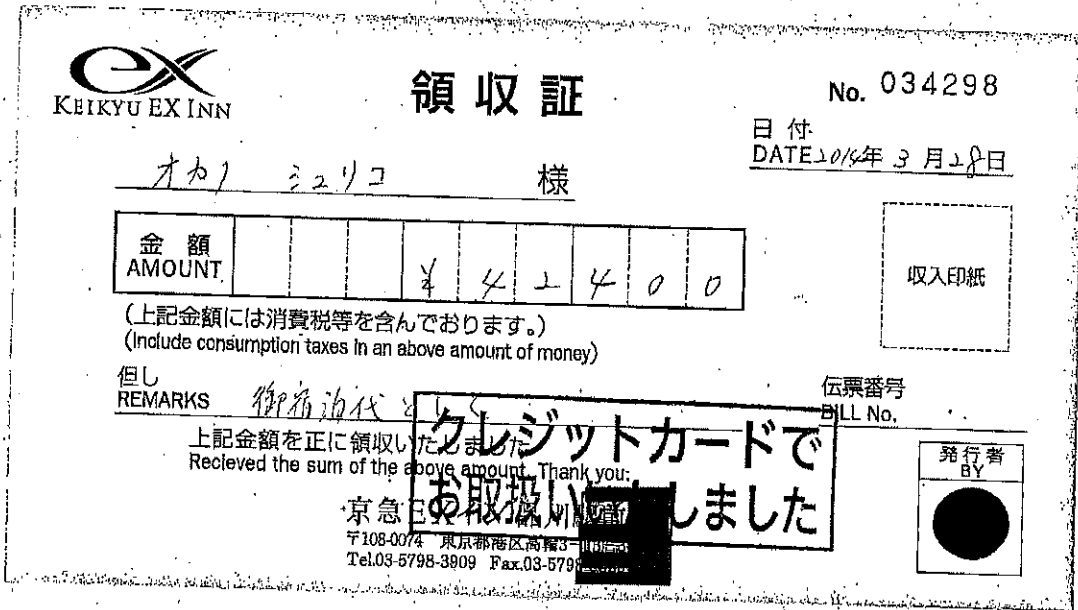 ex
KEIKYU EX INN
領収証
No. 034298
日付
DATE 2014年 3月28日
オカノ ミユリコ 様
金額
AMOUNT ¥42400
収入印紙
(上記金額には消費税等を含んでおります。)
(Include consumption taxes in an above amount of money)
但し
REMARKS 御宿泊代として
伝票番号
BILL No.
上記金額を正に領収いたしました
Recieved the sum of the above amount. Thank you.
クレジットカードで
お取扱い しました
発行者
BY
京急EXイン品川駅前
〒108-0074 東京都港区高輪3-
Tel.03-5798-3909 Fax.03-5798